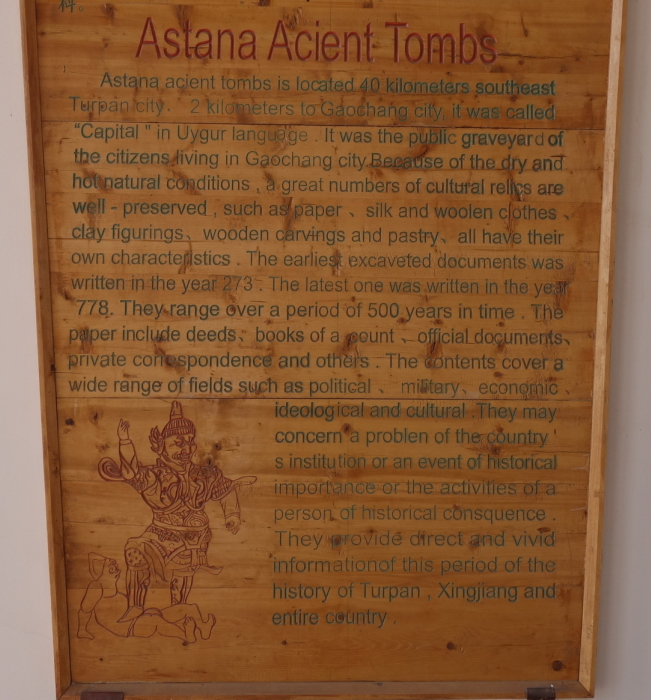 料。
Astana Acient Tombs
Astana acient tombs is located 40 kilometers southeast
Turpan city. 2 kilometers to Gaochang city, it was called
“Capital ” in Uygur language . It was the public graveyard of
the citizens living in Gaochang city.Because of the dry and
hot natural conditions , a great numbers of cultural relics are
well - preserved , such as paper 、 silk and woolen clothes 、
clay figurings、 wooden carvings and pastry、 all have their
own characteristics . The earliest excaveted documents was
written in the year 273 . The latest one was written in the year
778. They range over a period of 500 years in time . The
paper include deeds、 books of a ount 、official documents、
private correspondence and others . The contents cover a
wide range of fields such as political 、 military、 economic 、
ideological and cultural .They may
concern a problen of the country '
s institution or an event of historical
importance or the activities of a
person of historical consquence .
They provide direct and vivid
informationof this period of the
history of Turpan , Xingjiang and
entire country .